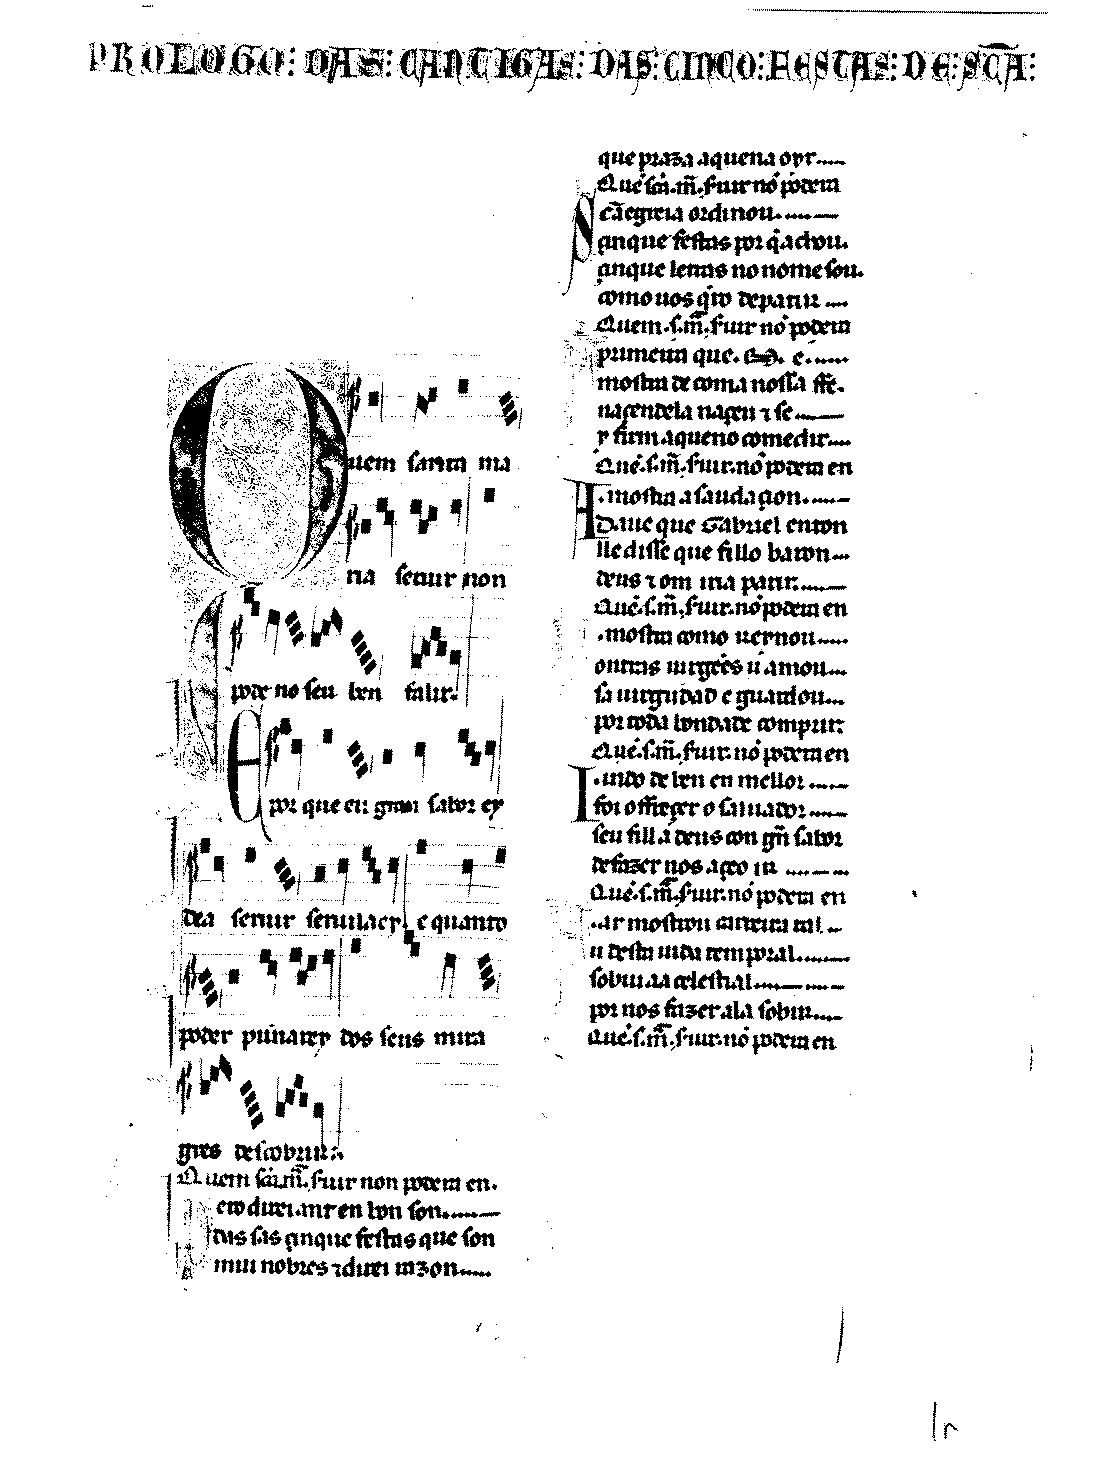 PROLOGO: DAS: CANTIGAS: DAS: CINCO: FESTAS: DE: SCA:
Quem santa ma
ria seruir non
pode no seu ben falir.
E por que eu gran sabor ey
dea seruir seruilaey. e quanto
poder punarey dos seus mira
gres descobrir.
Quem sca.m̃. ſuir non podera en.
ero dizei.ant en bon son.....
das sas çinque festas que son
mui nobres ⁊ direi razon.....
que praza aquena oyr.....
Qué sca.m̃. ſuir nó podera
S cã egreia ordinou.....
çinque festas por q̇ achou.
çinque letras no nome sou.
como uos q̇ro departir ....
Quem .s.m̃. ſuir nó podera
primeira que. e.....
mostra de coma nossa
naçendela naçeu ⁊ se ....
y firm aqueno comedir....
Qué.s.m̃. ſuir.nó podera en
A .mostra a saudaçon.....
Daue que Gabriel enton
lle disse que fillo baron...
deus ⁊ om ira parir.....
Qué.s.m̃. ſuir.nó podera en
.mostra como uernou.....
outras uirgées u amou...
sa uirgĩdad e guardou...
por toda bondade comprir:
Qué.s.m̃. ſuir. nó podera en
I .indo de ben en mellor .....
foi offreçer o saluador.....
seu fill a deus con gñ sabor
de fazer nos aço ....
Qué.s.m̃. ſuir.nó podera en
..ar mostrou carreira tal ..
u desta uida temporal......
sobiu aa celestial........
por nos fazer ala sobir....
Qué.s.m̃. ſuir.nó podera en
1r